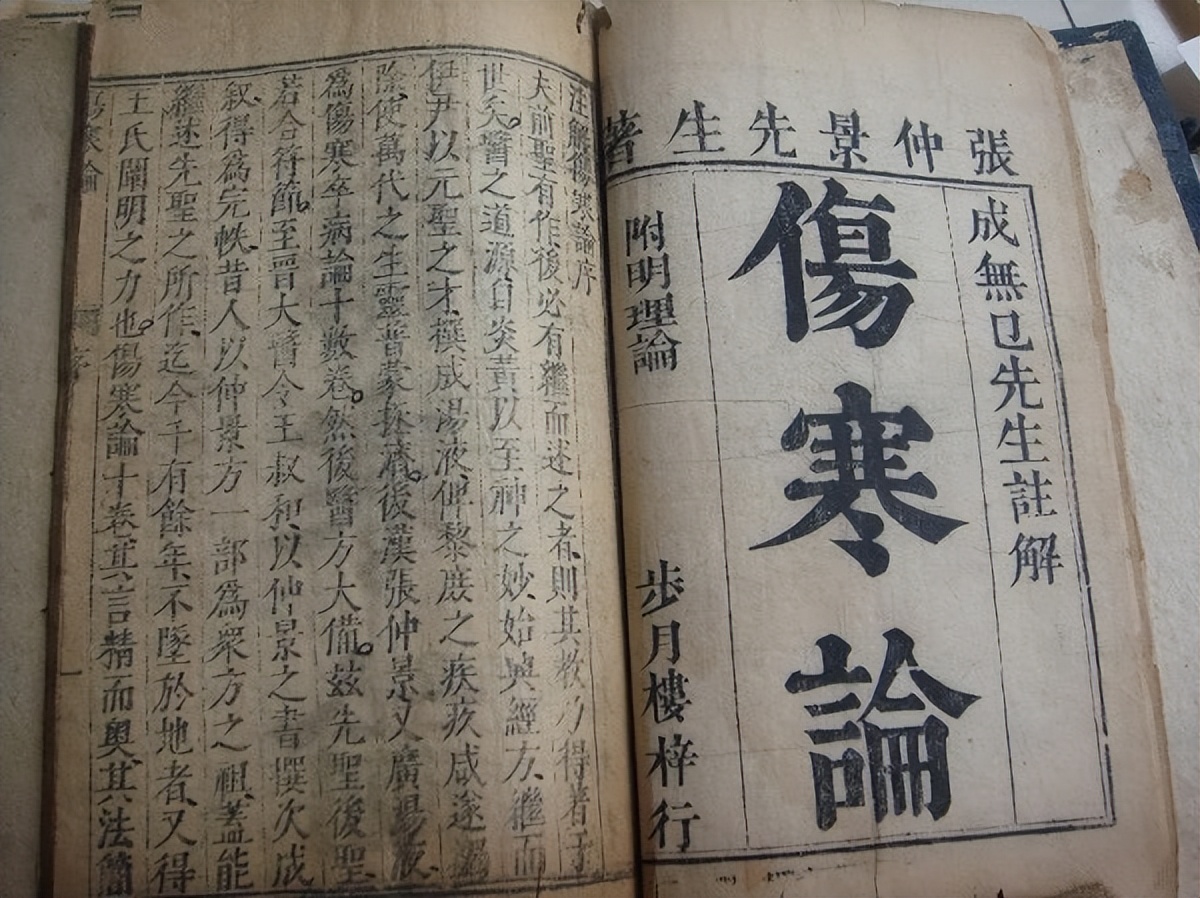 張仲景先生著
成無已先生註解
傷寒論
附明理論
步月樓梓行
注解傷寒論序
夫前聖有作後必有繼而述之者、則其教乃得著于
世矣。醫之道源自炎黃以至神之妙、始興經方、繼而
伊尹以元聖之才、撰成湯液、俾黎庶之疾疢咸遂蠲
除、使萬代之生靈普蒙拯濟。後漢張仲景又廣湯液、
爲傷寒卒病論十數卷。然後醫方大備。茲先聖後聖、
若合符節。至晉大醫令王叔和、以仲景之書撰次成
叙、得爲完帙、昔人以仲景方一部爲衆方之祖、蓋能
繼述先聖之所作、迄今千有餘年、不墜於地者、又得
王氏闡明之力也。傷寒論十卷其言精而奧、其法簡
傷寒論 序 一